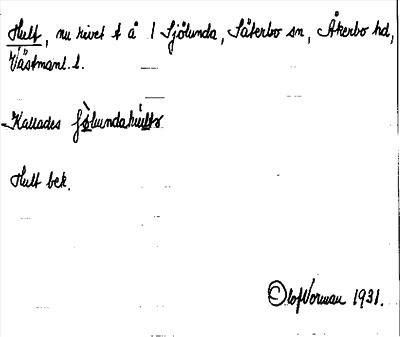 Hult, nu rivet t å 1 Sjölunda, Säterbo sn, Åkerbo hd,
Västmanl. l.
Kallades
Hult bek.
Olof Norman 1931.